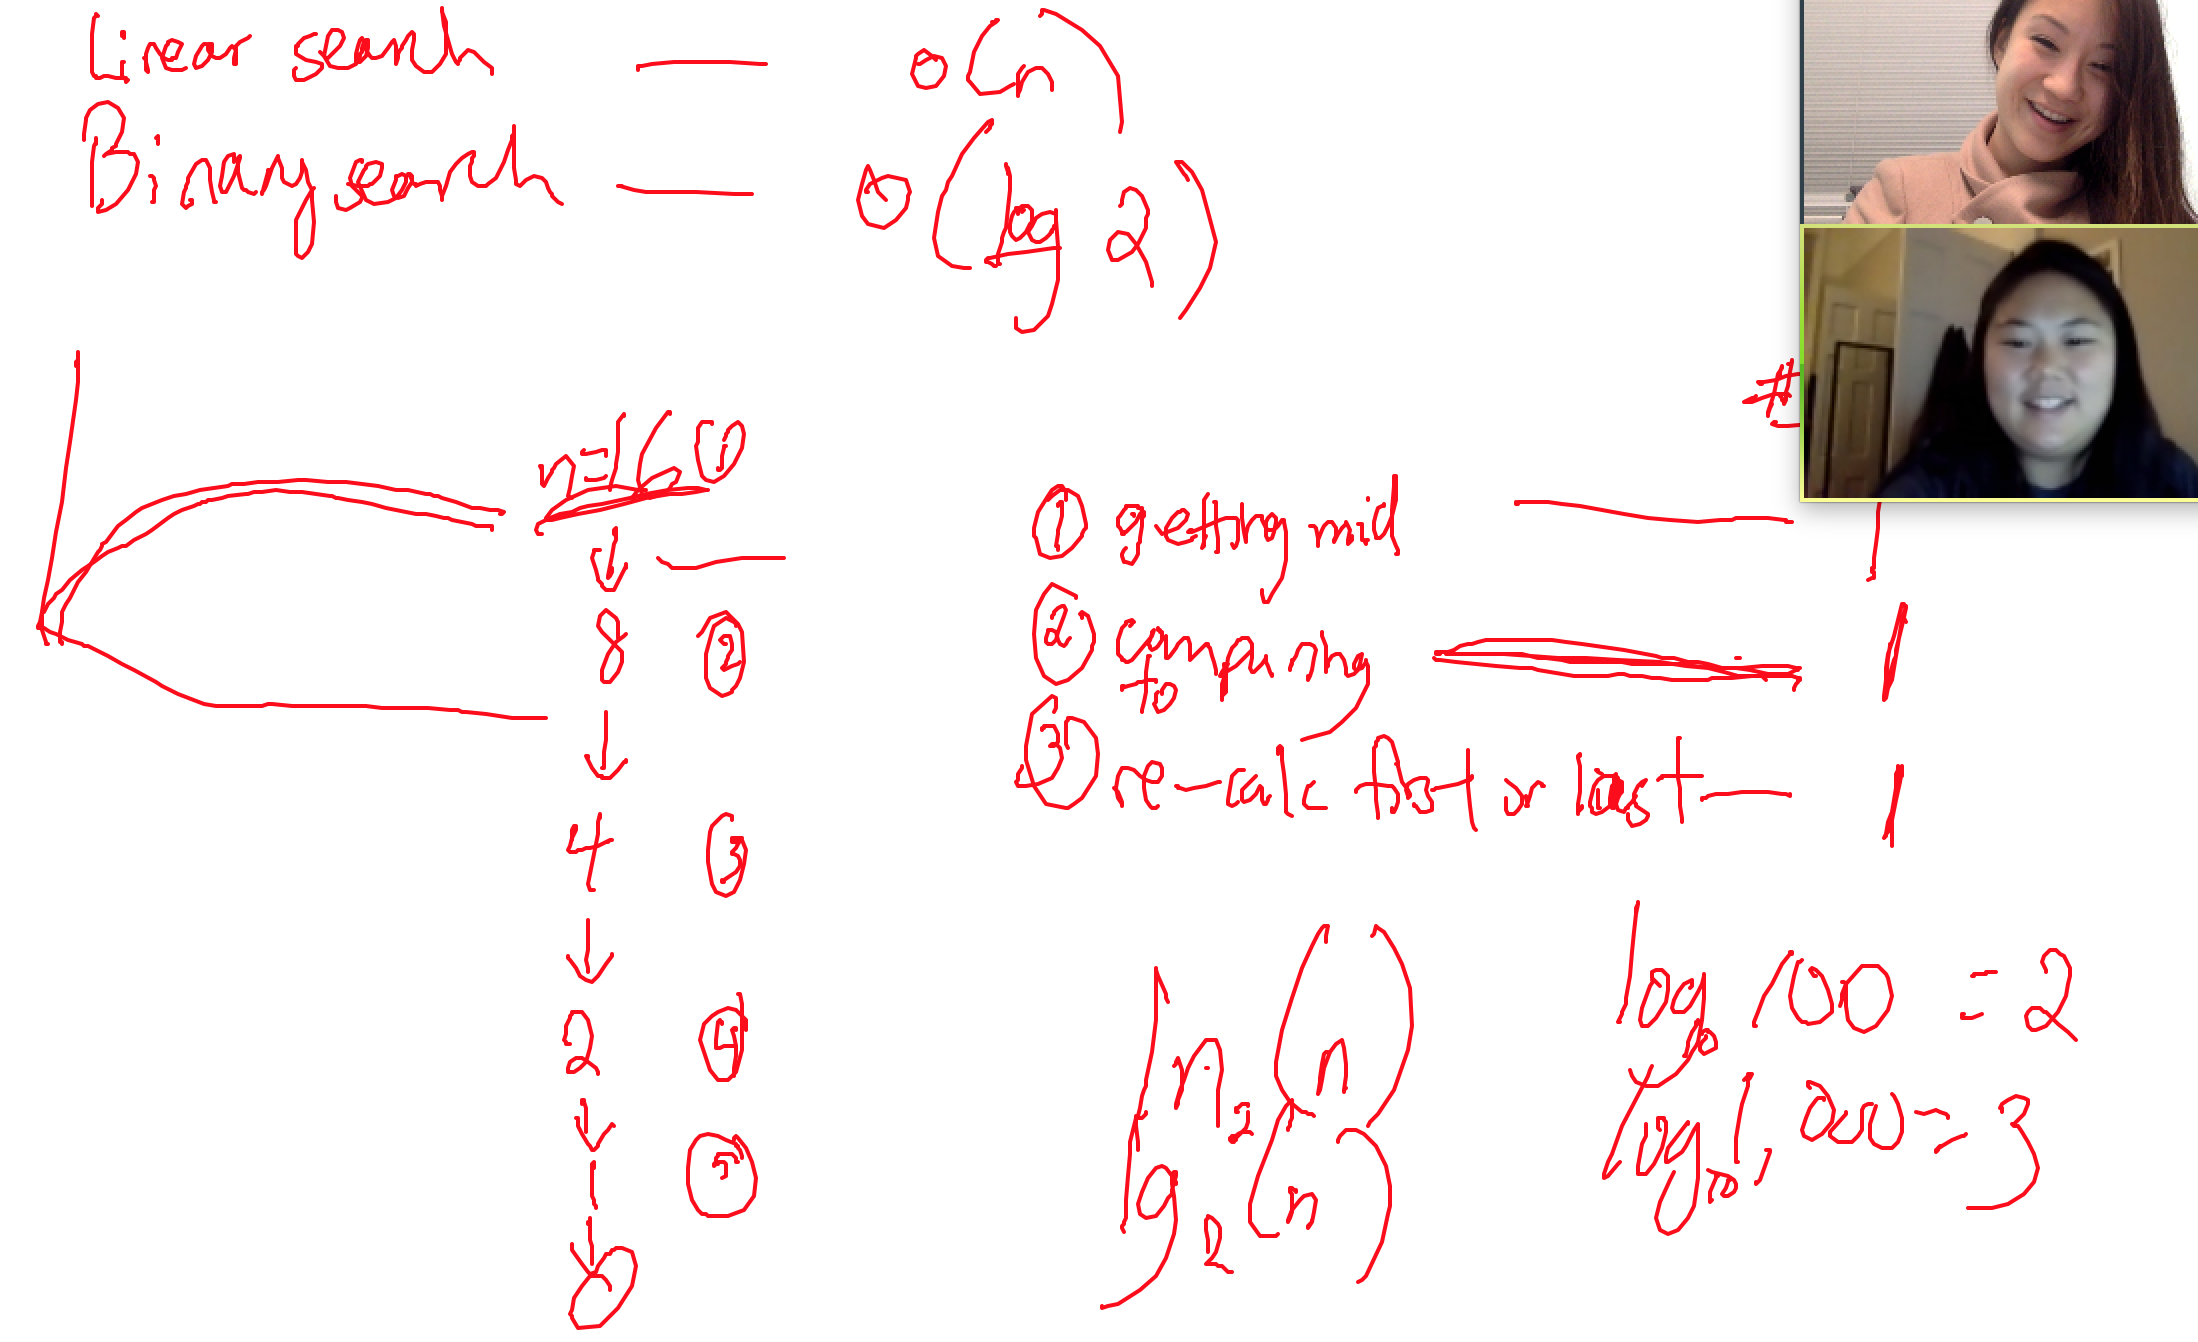 Linear search — O(n)
Binary search — O(log 2)
n=16 ①
↓ —
8 ②
↓
4 ③
↓
2 ④
↓
1 ⑤
↓
0
#
① getting mid — 1
② comparing to — 1
③ re-calc first or last — 1
ln₂(n)
lg₂(n)
log₁₀ 100 = 2
log₁₀ 1,000 = 3